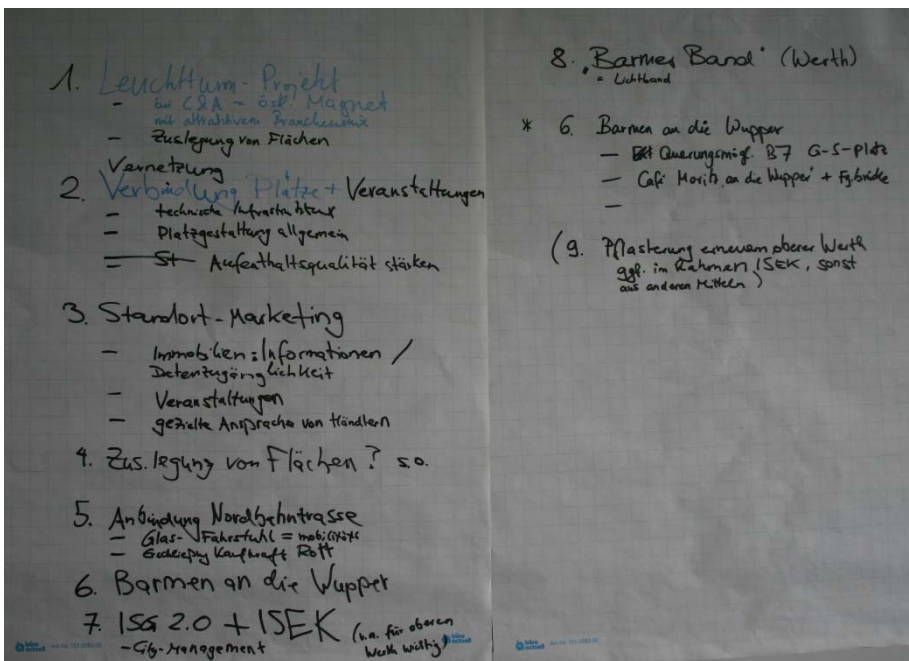 1. Leuchtturm-Projekt
- bei C&A - östl. Magnet
mit attraktivem Branchenmix
- Zuslegung von Flächen
Vernetzung
2. Verbindung Plätze + Veranstaltungen
- technische Infrastruktur
- Platzgestaltung allgemein
- St Aufenthaltsqualität stärken
3. Standort-Marketing
- Immobilien: Informationen /
Datenzugänglichkeit
- Veranstaltungen
- gezielte Ansprache von Händlern
4. Zus.legung von Flächen? s.o.
5. Anbindung Nordbahntrasse
- Glas-Fahrstuhl =
- Kaufkraft Rott
6. Barmen an die Wupper
7. ISG 2.0 + ISEK (v.a. für oberen
Werth wichtig)
- City-Management
8. "Barmer Band" (Werth)
= Lichtband
* 6. Barmen an die Wupper
- Querungsmögl. B7 G-S-Platz
- Café Moritz "an die Wupper" +
-
(9. Pflasterung erneuern oberer Werth
ggf. im Rahmen ISEK, sonst
aus anderen Mitteln)
büro actuell
büro actuell
büro actuell